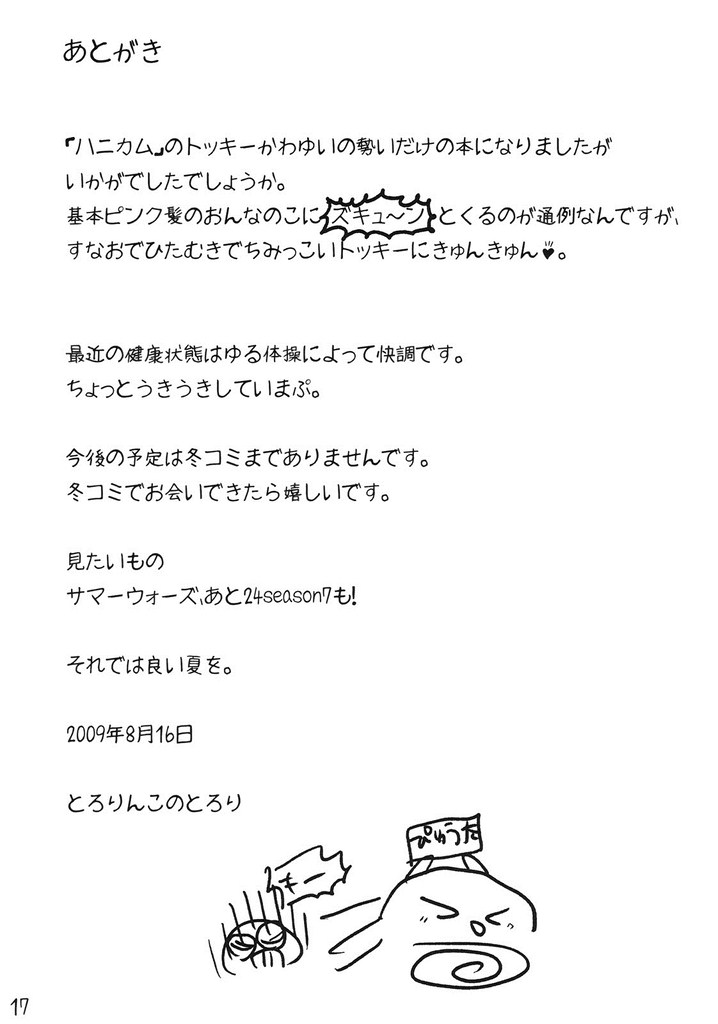 あとがき
「ハニカム」のトッキーかわゆいの勢いだけの本になりましたが
いかがでしたでしょうか。
基本ピンク髪のおんなのこにズキュ〜ンとくるのが通例なんですが、
すなおでひたむきでちみっこいトッキーにきゅんきゅん♥。
最近の健康状態はゆる体操によって快調です。
ちょっとうきうきしていまぷ。
今後の予定は冬コミまでありませんです。
冬コミでお会いできたら嬉しいです。
見たいもの
サマーウォーズ、あと24season7も!
それでは良い夏を。
2009年8月16日
とろりんこのとろり
ぴゅうた
17